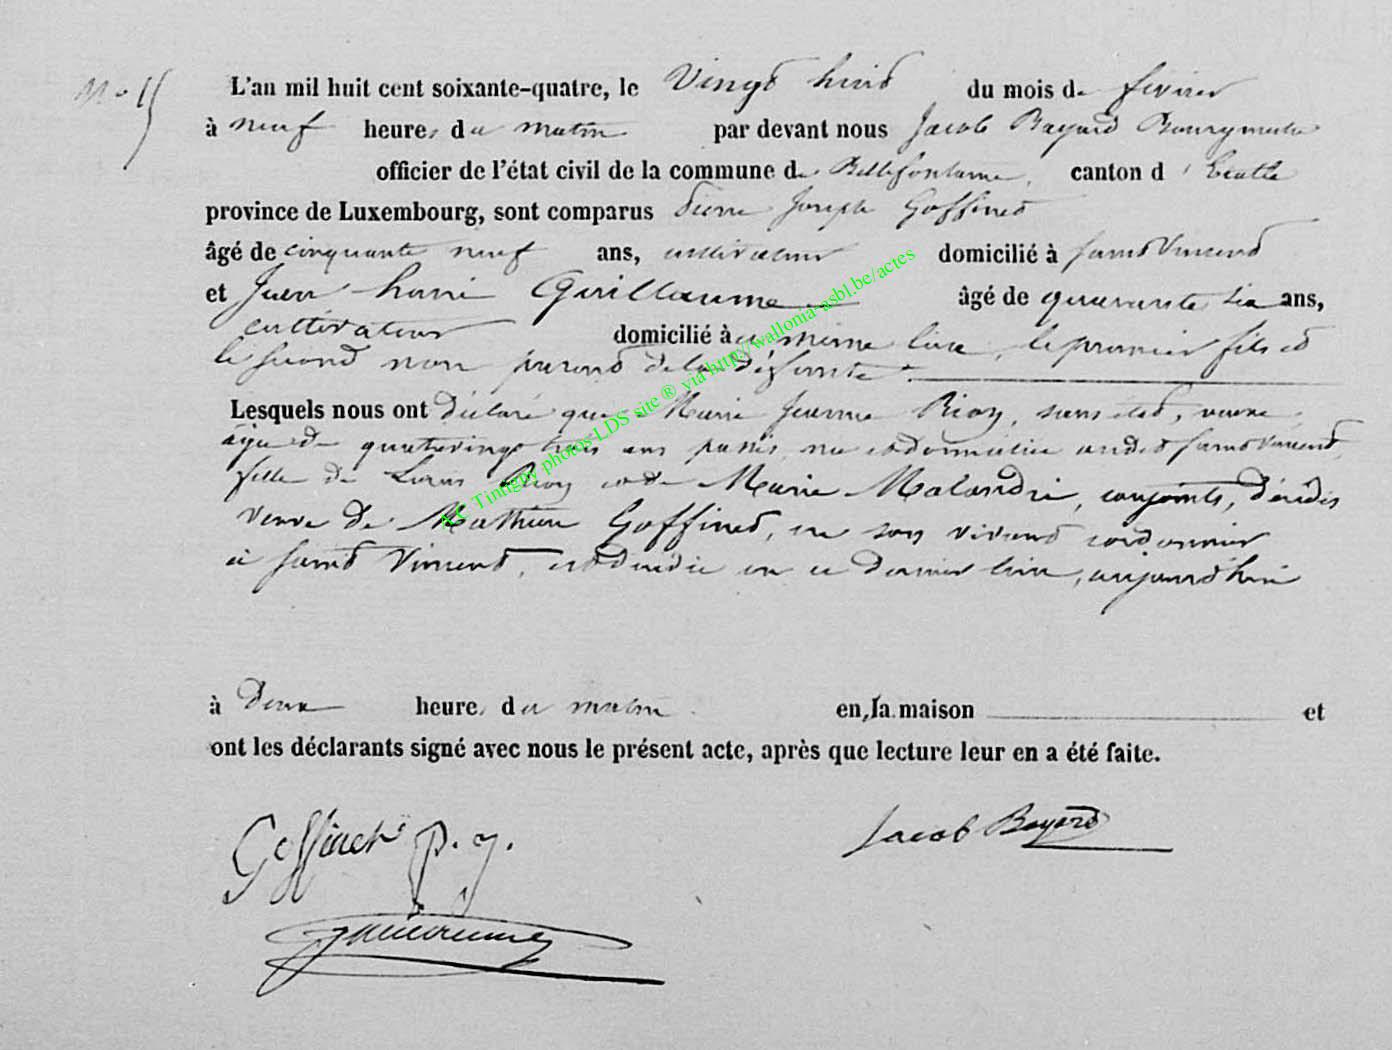 L'an mil huit cent soixante-quatre, le Vingt huit du mois de février
à neuf heures du matin par devant nous Jacob Bayard Bourgmestre
officier de l'état civil de la commune de Bellefontaine, canton d'Etalle
province de Luxembourg, sont comparus Pierre Joseph Goffinet
âgé de cinquante neuf ans, cultivateur domicilié à Saint Vincent
et Jean henri Guillaume âgé de quarante six ans,
cultivateur domicilié au même lieu, le premier fils et
le second non parent de la défunte.
Lesquels nous ont déclaré que Marie Jeanne Rion, sans état, veuve
âgée de quatrevingt trois ans passés, née et domiciliée audit Saint Vincent,
fille de Louis Rion et de Marie Malandré, conjoints, décédés
veuve de Mathieu Goffinet, en son vivant cordonnier
à Saint Vincent, est décédée en ce dernier lieu, aujourd'hui
à Deux heures du matin en la maison et
ont les déclarants signé avec nous le présent acte, après que lecture leur en a été faite.
Goffinet p. j. Jacob Bayard
Guillaume
AC Tintigny photos LDS site ® via http://wallonia-asbl.be/actes